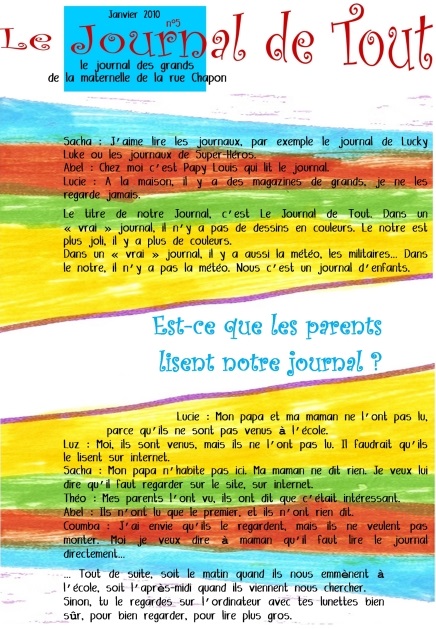 Janvier 2010
n°5
Le Journal de Tout
le journal des grands
de la maternelle de la rue Chapon
Sacha : J'aime lire les journaux, par exemple le journal de Lucky
Luke ou les journaux de Super-Héros.
Abel : Chez moi c'est Papy Louis qui lit le journal.
Lucie : A la maison, il y a des magazines de grands, je ne les
regarde jamais.
Le titre de notre Journal, c'est Le Journal de Tout. Dans un
« vrai » journal, il n'y a pas de dessins en couleurs. Le notre est
plus joli, il y a plus de couleurs.
Dans un « vrai » journal, il y a aussi la météo, les militaires... Dans
le notre, il n'y a pas la météo. Nous c'est un journal d'enfants.
Est-ce que les parents
lisent notre journal ?
Lucie : Mon papa et ma maman ne l'ont pas lu,
parce qu'ils ne sont pas venus à l'école.
Luz : Moi, ils sont venus, mais ils ne l'ont pas lu. Il faudrait qu'ils
le lisent sur internet.
Sacha : Mon papa n'habite pas ici. Ma maman ne dit rien. Je veux lui
dire qu'il faut regarder sur le site, sur internet.
Théo : Mes parents l'ont vu, ils ont dit que c'était intéressant.
Abel : Ils n'ont lu que le premier, et ils n'ont rien dit.
Coumba : J'ai envie qu'ils le regardent, mais ils ne veulent pas
monter. Moi je veux dire à maman qu'il faut lire le journal
directement...
... Tout de suite, soit le matin quand ils nous emmènent à
l'école, soit l'après-midi quand ils viennent nous chercher.
Sinon, tu le regardes sur l'ordinateur avec tes lunettes bien
sûr, pour bien regarder, pour lire plus gros.